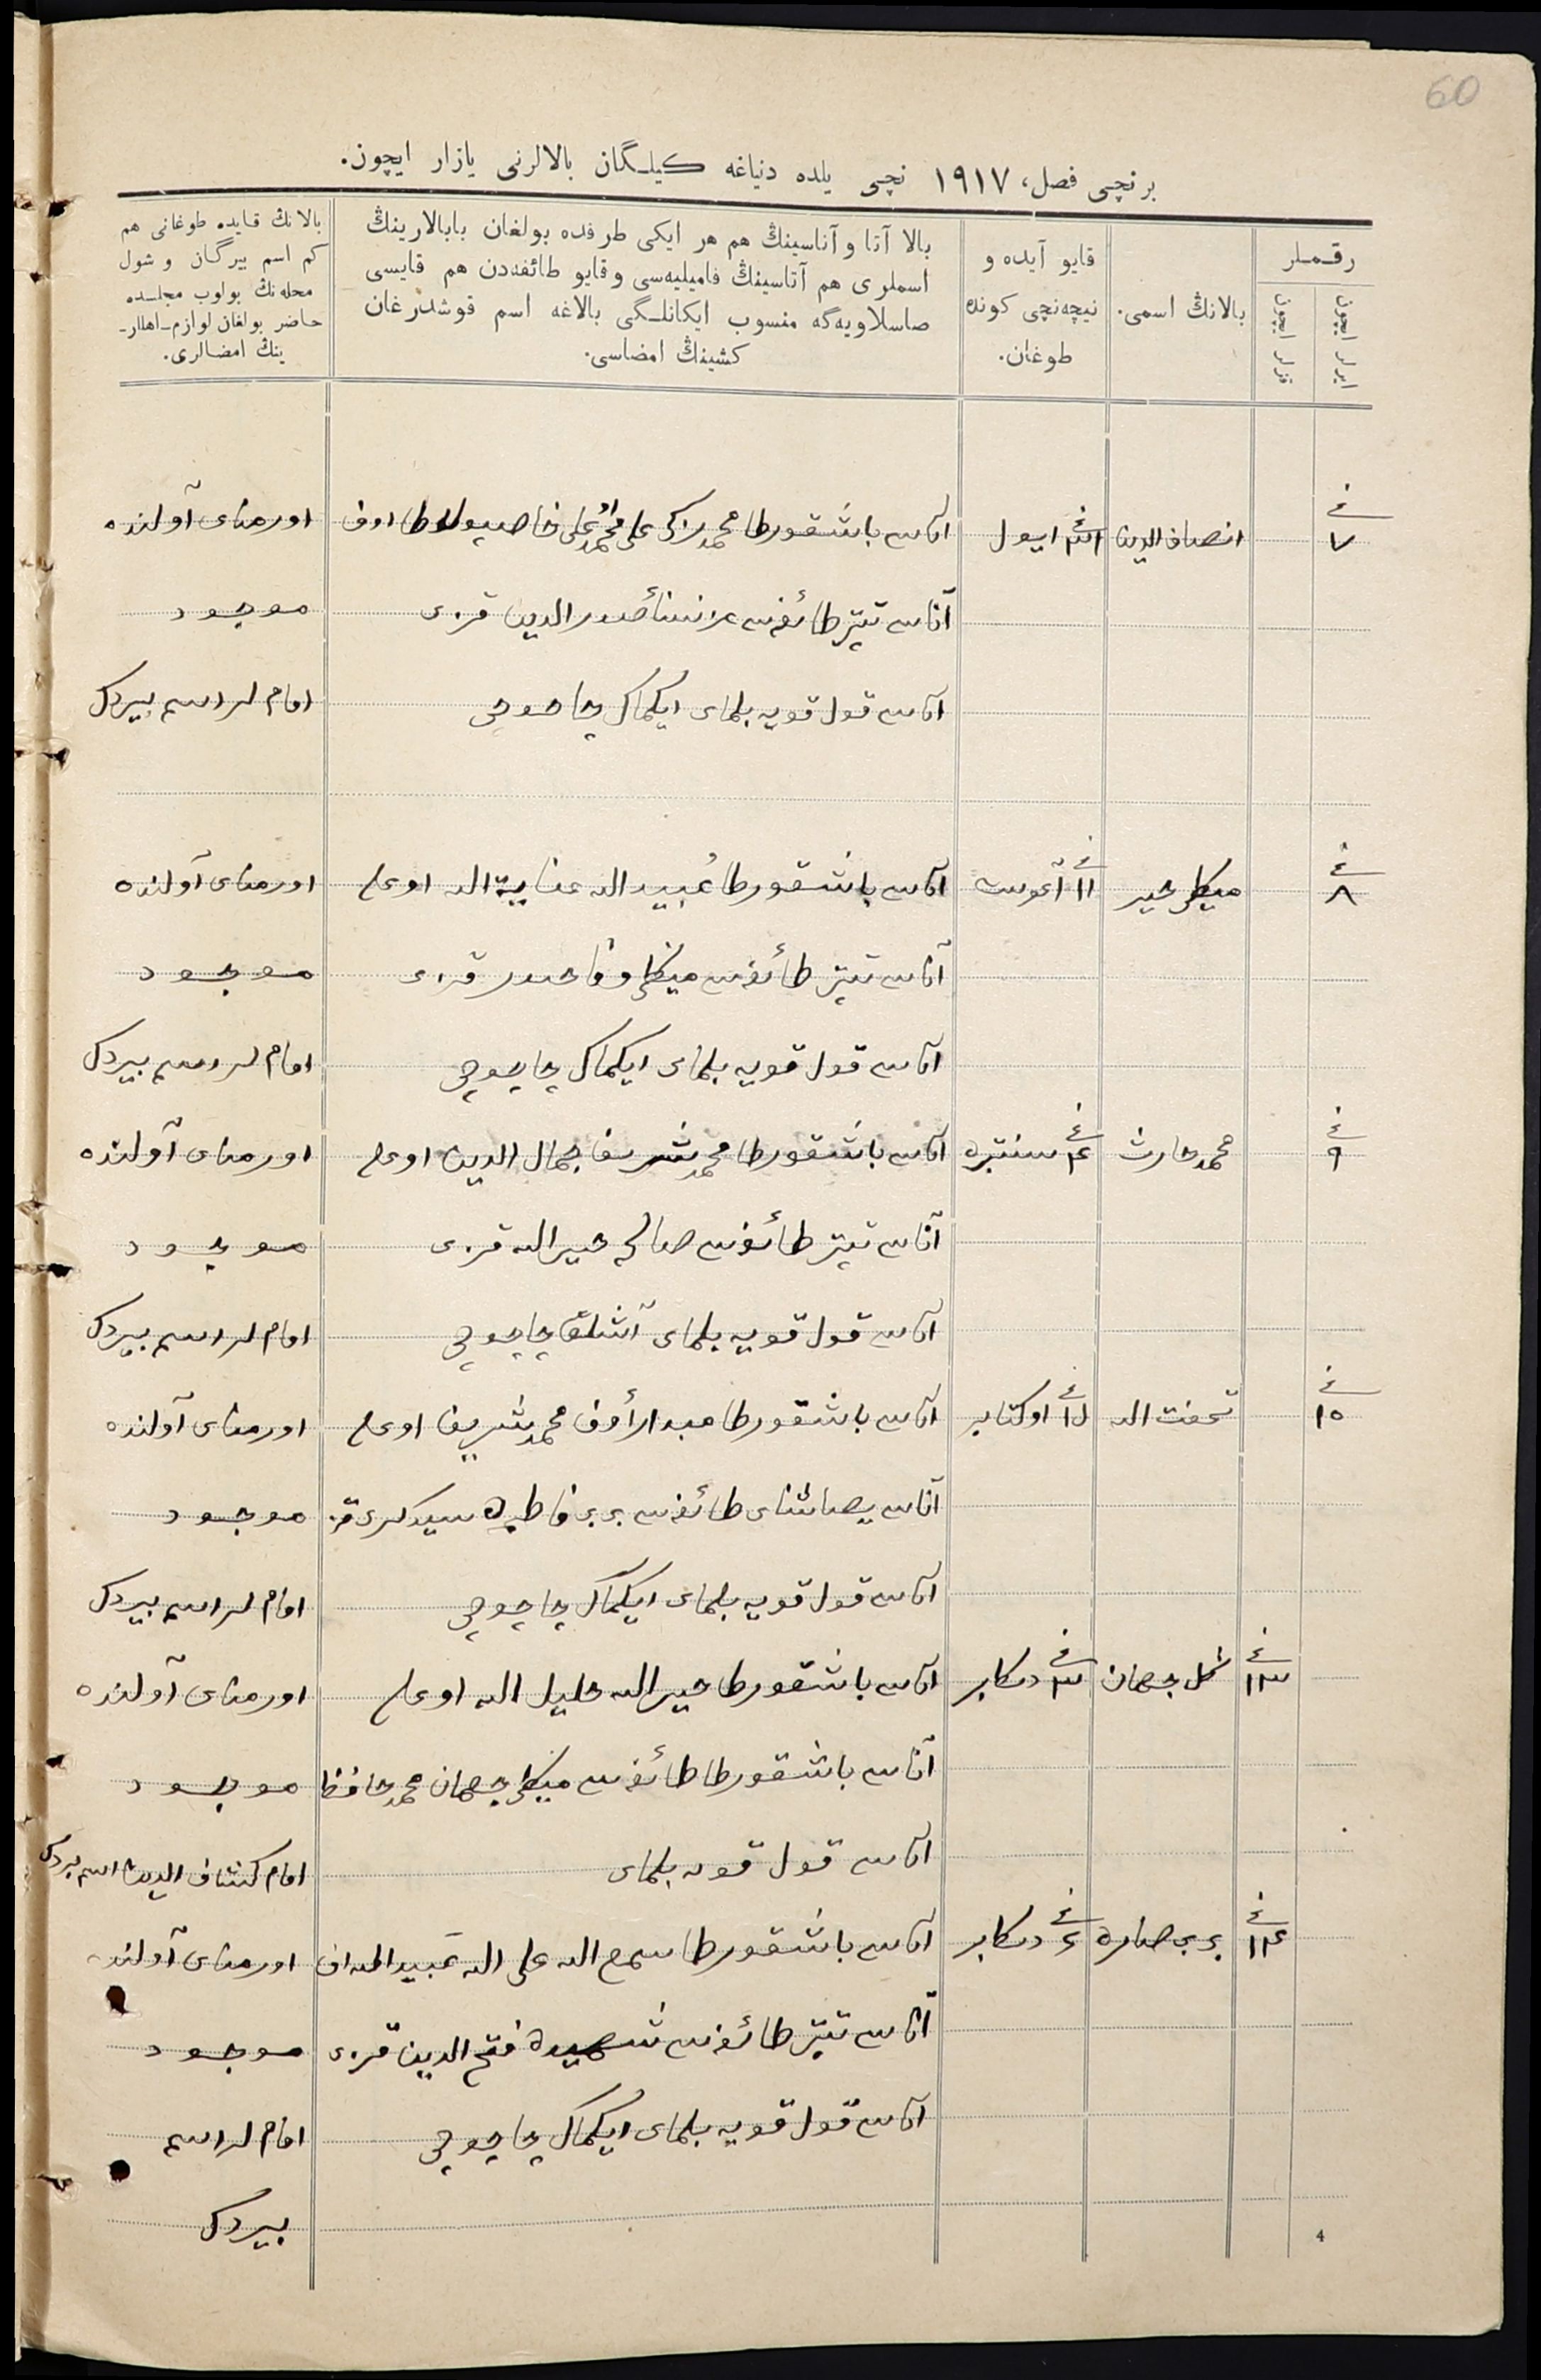 60
برنچی فصل، ١٩١٧ نچی یلده دنیاغه کیلـگان بالالرنی یازار ایچون.
رقـمـلر
ایرلر ایچون
قزلر ایچون
بالانڭ اسمی.
قایو آیده و
نیچه‌نچی کونده
طوغان.
بالا آتا و آناسینڭ هم هر ایکی طرفده بولغان بابالارینڭ
اسملری هم آتاسینڭ فامیلیه‌سی و قایو طائفه‌دن هم قایسی
صاسلاویه‌گه منسوب ایکانلـگی بالاغه اسم قوشدرغان
کشینڭ امضاسی.
بالانڭ قـایده طوغانی هم
کم اسم بیرگان و شول
محله‌نڭ بولوب مجلـسده
حاضر بولغان لوازم اهللار-
ینڭ امضـالری.
٧ انصاف الدین ایول آتاسی باشقورط محمد زاکی علی محمد علی اورمنای آولنده
آناسی تیپتر طائفه‌سی صدر الدین قزی موجود
آتاسی قول قویه بلمای ایکماک چاچوچی امام لر اسم بیردک
٨ میکلی خیر ١١ آغوست آتاسی باشقورط عبید الله عنایة الله اوغلی اورمنای آولنده
آناسی تیپتر طائفه‌سی قزی موجود
آتاسی قول قویه بلمای ایکماک چاچوچی امام لر اسم بیردک
٩ محمد حارث ٤ سنتبره آتاسی باشقورط محمد شریف جمال الدین اوغلی اورمنای آولنده
آناسی تیپتر طائفه‌سی صالحه خیر الله قزی موجود
آتاسی قول قویه بلمای آشلق چاچوچی امام لر اسم بیردک
١٠ تحفت الله اوکتابر آتاسی باشقورط عبد الرأوف محمد شریف اوغلی اورمنای آولنده
آناسی طائفه‌سی بی بی فاطیره قز موجود
آتاسی قول قویه بلمای ایکماک چاچوچی امام لر اسم بیردک
١٣ گل جهان ٣ دکابر آتاسی باشقورط خیر الله خلیل الله اوغلی اورمنای آولنده
آناسی باشقورط طائفه‌سی میکلی جهان محمد حافظ موجود
آتاسی قول قویه بلمای امام کشاف الدین اسم بیردک
١٤ بی بی صاره ٦ دکابر آتاسی باشقورط سمع الله علی الله عبید الله اف اورمنای آولنده
آناسی تیپتر طائفه‌سی شهیده فتح الدین قزی موجود
آتاسی قول قویه بلمای ایکماک چاچوچی امام لر اسم
بیردک
4